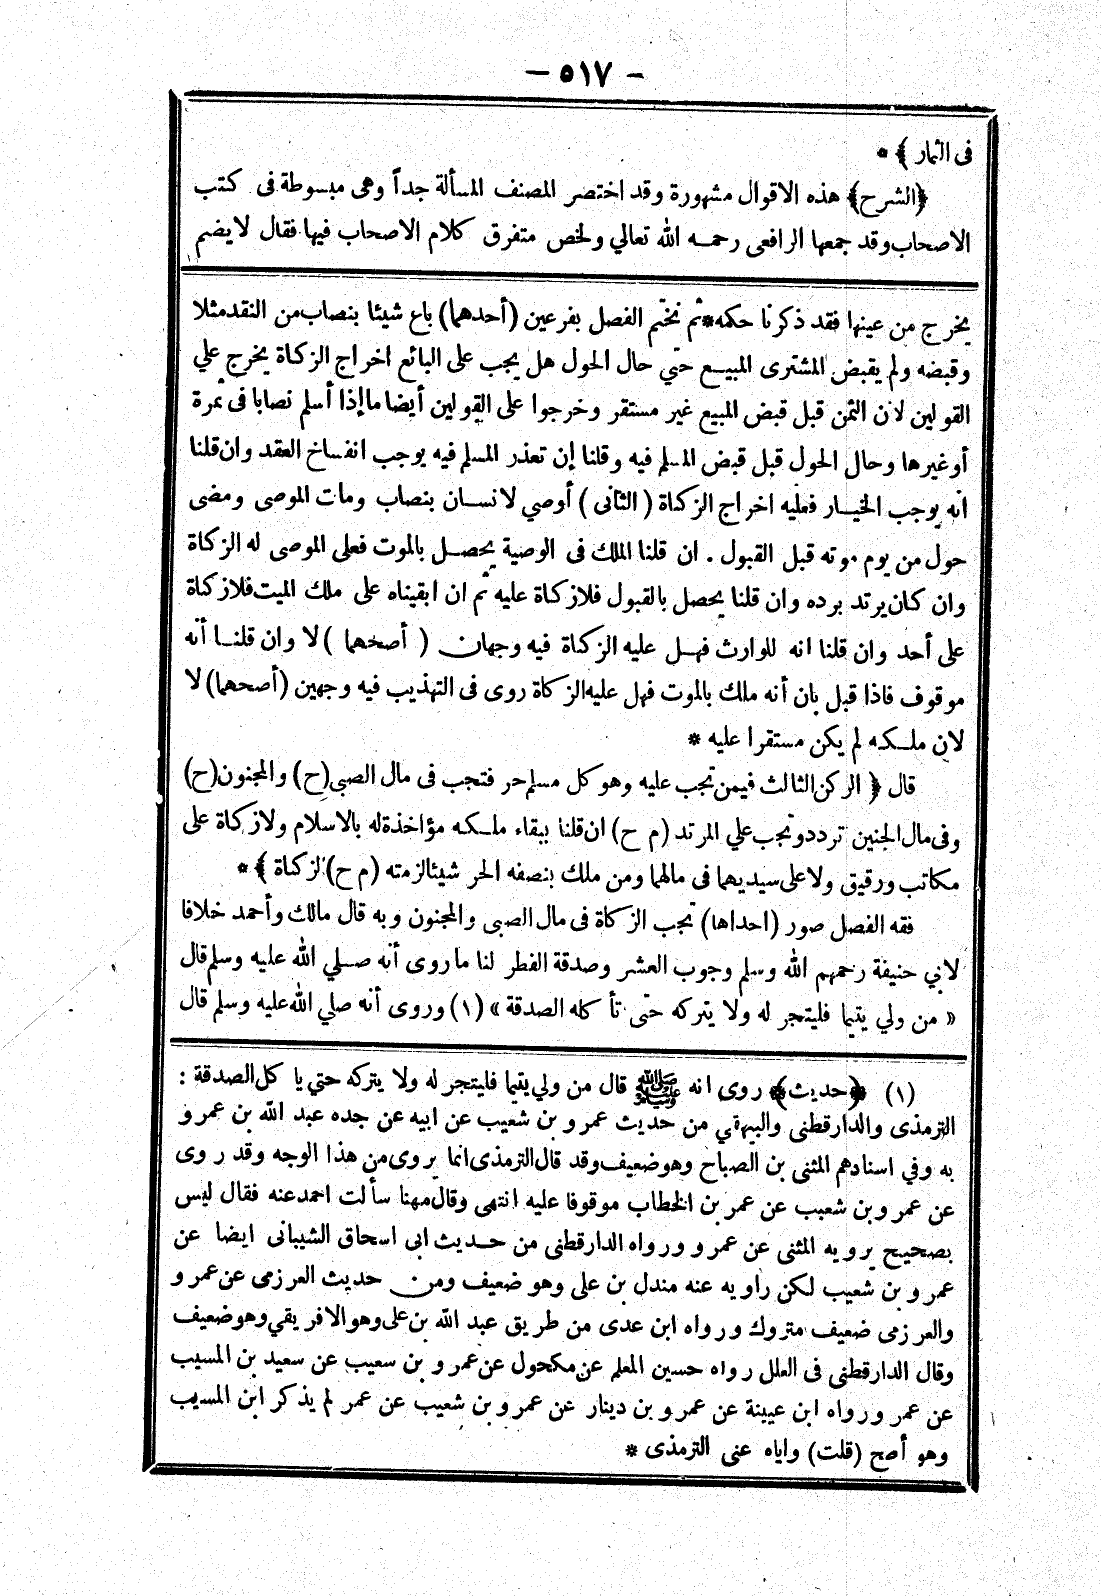 – ٥١٧ –
فى الثمار ﴾ *
﴿الشرح﴾ هذه الاقوال مشهورة وقد اختصر المصنف المسألة جداً وهى مبسوطة فى كتب
الاصحاب وقد جمعها الرافعى رحمه الله تعالي ولخص متفرق كلام الاصحاب فيها فقال لا يضم
يخرج من عينها فقد ذكرنا حكمه * ثم نختم الفصل بفرعين (أحدهما) باع شيئا بنصاب من النقد مثلا
وقبضه ولم يقبض المشترى المبيع حتي حال الحول هل يجب على البائع اخراج الزكاة يخرج علي
القولين لان الثمن قبل قبض المبيع غير مستقر وخرجوا على القولين أيضا ما إذا أسلم نصابا فى ثمرة
أو غيرها وحال الحول قبل قبض المسلم فيه وقلنا إن تعذر المسلم فيه يوجب انفساخ العقد وان قلنا
انه يوجب الخيار فعليه اخراج الزكاة ( الثانى ) أوصي لانسان بنصاب ومات الموصى ومضى
حول من يوم موته قبل القبول . ان قلنا الملك فى الوصية يحصل بالموت فعلى الموصى له الزكاة
وان كان يرتد برده وان قلنا يحصل بالقبول فلا زكاة عليه ثم ان ابقيناه على ملك الميت فلا زكاة
على أحد وان قلنا انه للوارث فهل عليه الزكاة فيه وجهان ( أصحهما ) لا وان قلنا أنه
موقوف فاذا قبل بان أنه ملك بالموت فهل عليه الزكاة روى فى التهذيب فيه وجهين (أصحهما) لا
لان ملكه لم يكن مستقرا عليه *
قال ﴿ الركن الثالث فيمن تجب عليه وهو كل مسلم حر فتجب فى مال الصبى (ح) والمجنون (ح)
وفى مال الجنين تردد وتجب علي المرتد (م ح) ان قلنا ببقاء ملكه مؤاخذة له بالاسلام ولا زكاة على
مكاتب ورقيق ولا على سيديهما فى مالهما ومن ملك بنصفه الحر شيئا لزمته (م ح) الزكاة ﴾ *
فقه الفصل صور (احداها) تجب الزكاة فى مال الصبى والمجنون وبه قال مالك وأحمد خلافا
لابي حنيفة رحمهم الله وسلم وجوب العشر وصدقة الفطر لنا ما روى أنه صلي الله عليه وسلم قال
« من ولي يتيما فليتجر له ولا يتركه حتى تأكله الصدقة » (١) وروى أنه صلي الله عليه وسلم قال
(١) ﴿حديث﴾ روى انه ﷺ قال من ولي يتيما فليتجر له ولا يتركه حتي ياكل الصدقة :
الترمذى والدارقطنى والبيهقي من حديث عمرو بن شعيب عن ابيه عن جده عبد الله بن عمرو
به وفي اسنادهم المثنى بن الصباح وهو ضعيف وقد قال الترمذى انما يروى من هذا الوجه وقد روى
عن عمرو بن شعيب عن عمر بن الخطاب موقوفا عليه انتهى وقال مهنا سألت احمد عنه فقال ليس
بصحيح يرويه المثنى عن عمرو ورواه الدارقطنى من حديث ابى اسحاق الشيبانى ايضا عن
عمرو بن شعيب لكن راويه عنه مندل بن على وهو ضعيف ومن حديث العرزمى عن عمرو
والعرزمى ضعيف متروك ورواه ابن عدى من طريق عبد الله بن على وهو الافريقي وهو ضعيف
وقال الدارقطنى فى العلل رواه حسين المعلم عن مكحول عن عمرو بن سعيب عن سعيد بن المسيب
عن عمر ورواه ابن عيينة عن عمرو بن دينار عن عمرو بن شعيب عن عمر لم يذكر ابن المسيب
وهو أصح (قلت) واياه عنى الترمذى *